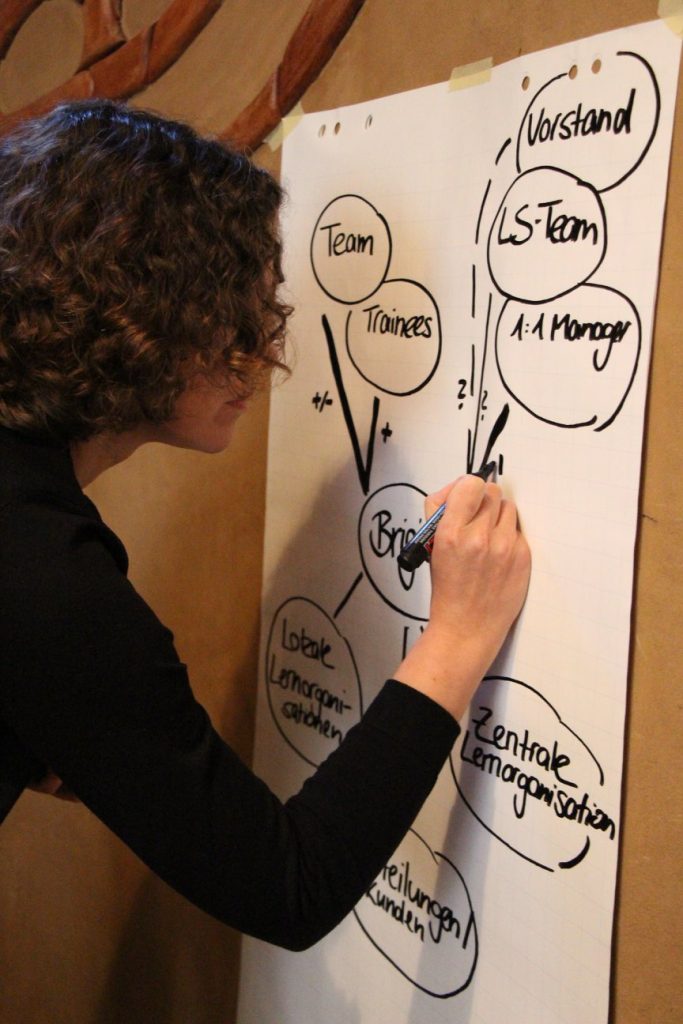 Vorstand
LS-Team
1:1 Manager
Team
Trainees
+/-
+
?
?
Lokale
Lernorgani-
sationen
Zentrale
Lernorganisation
kunden